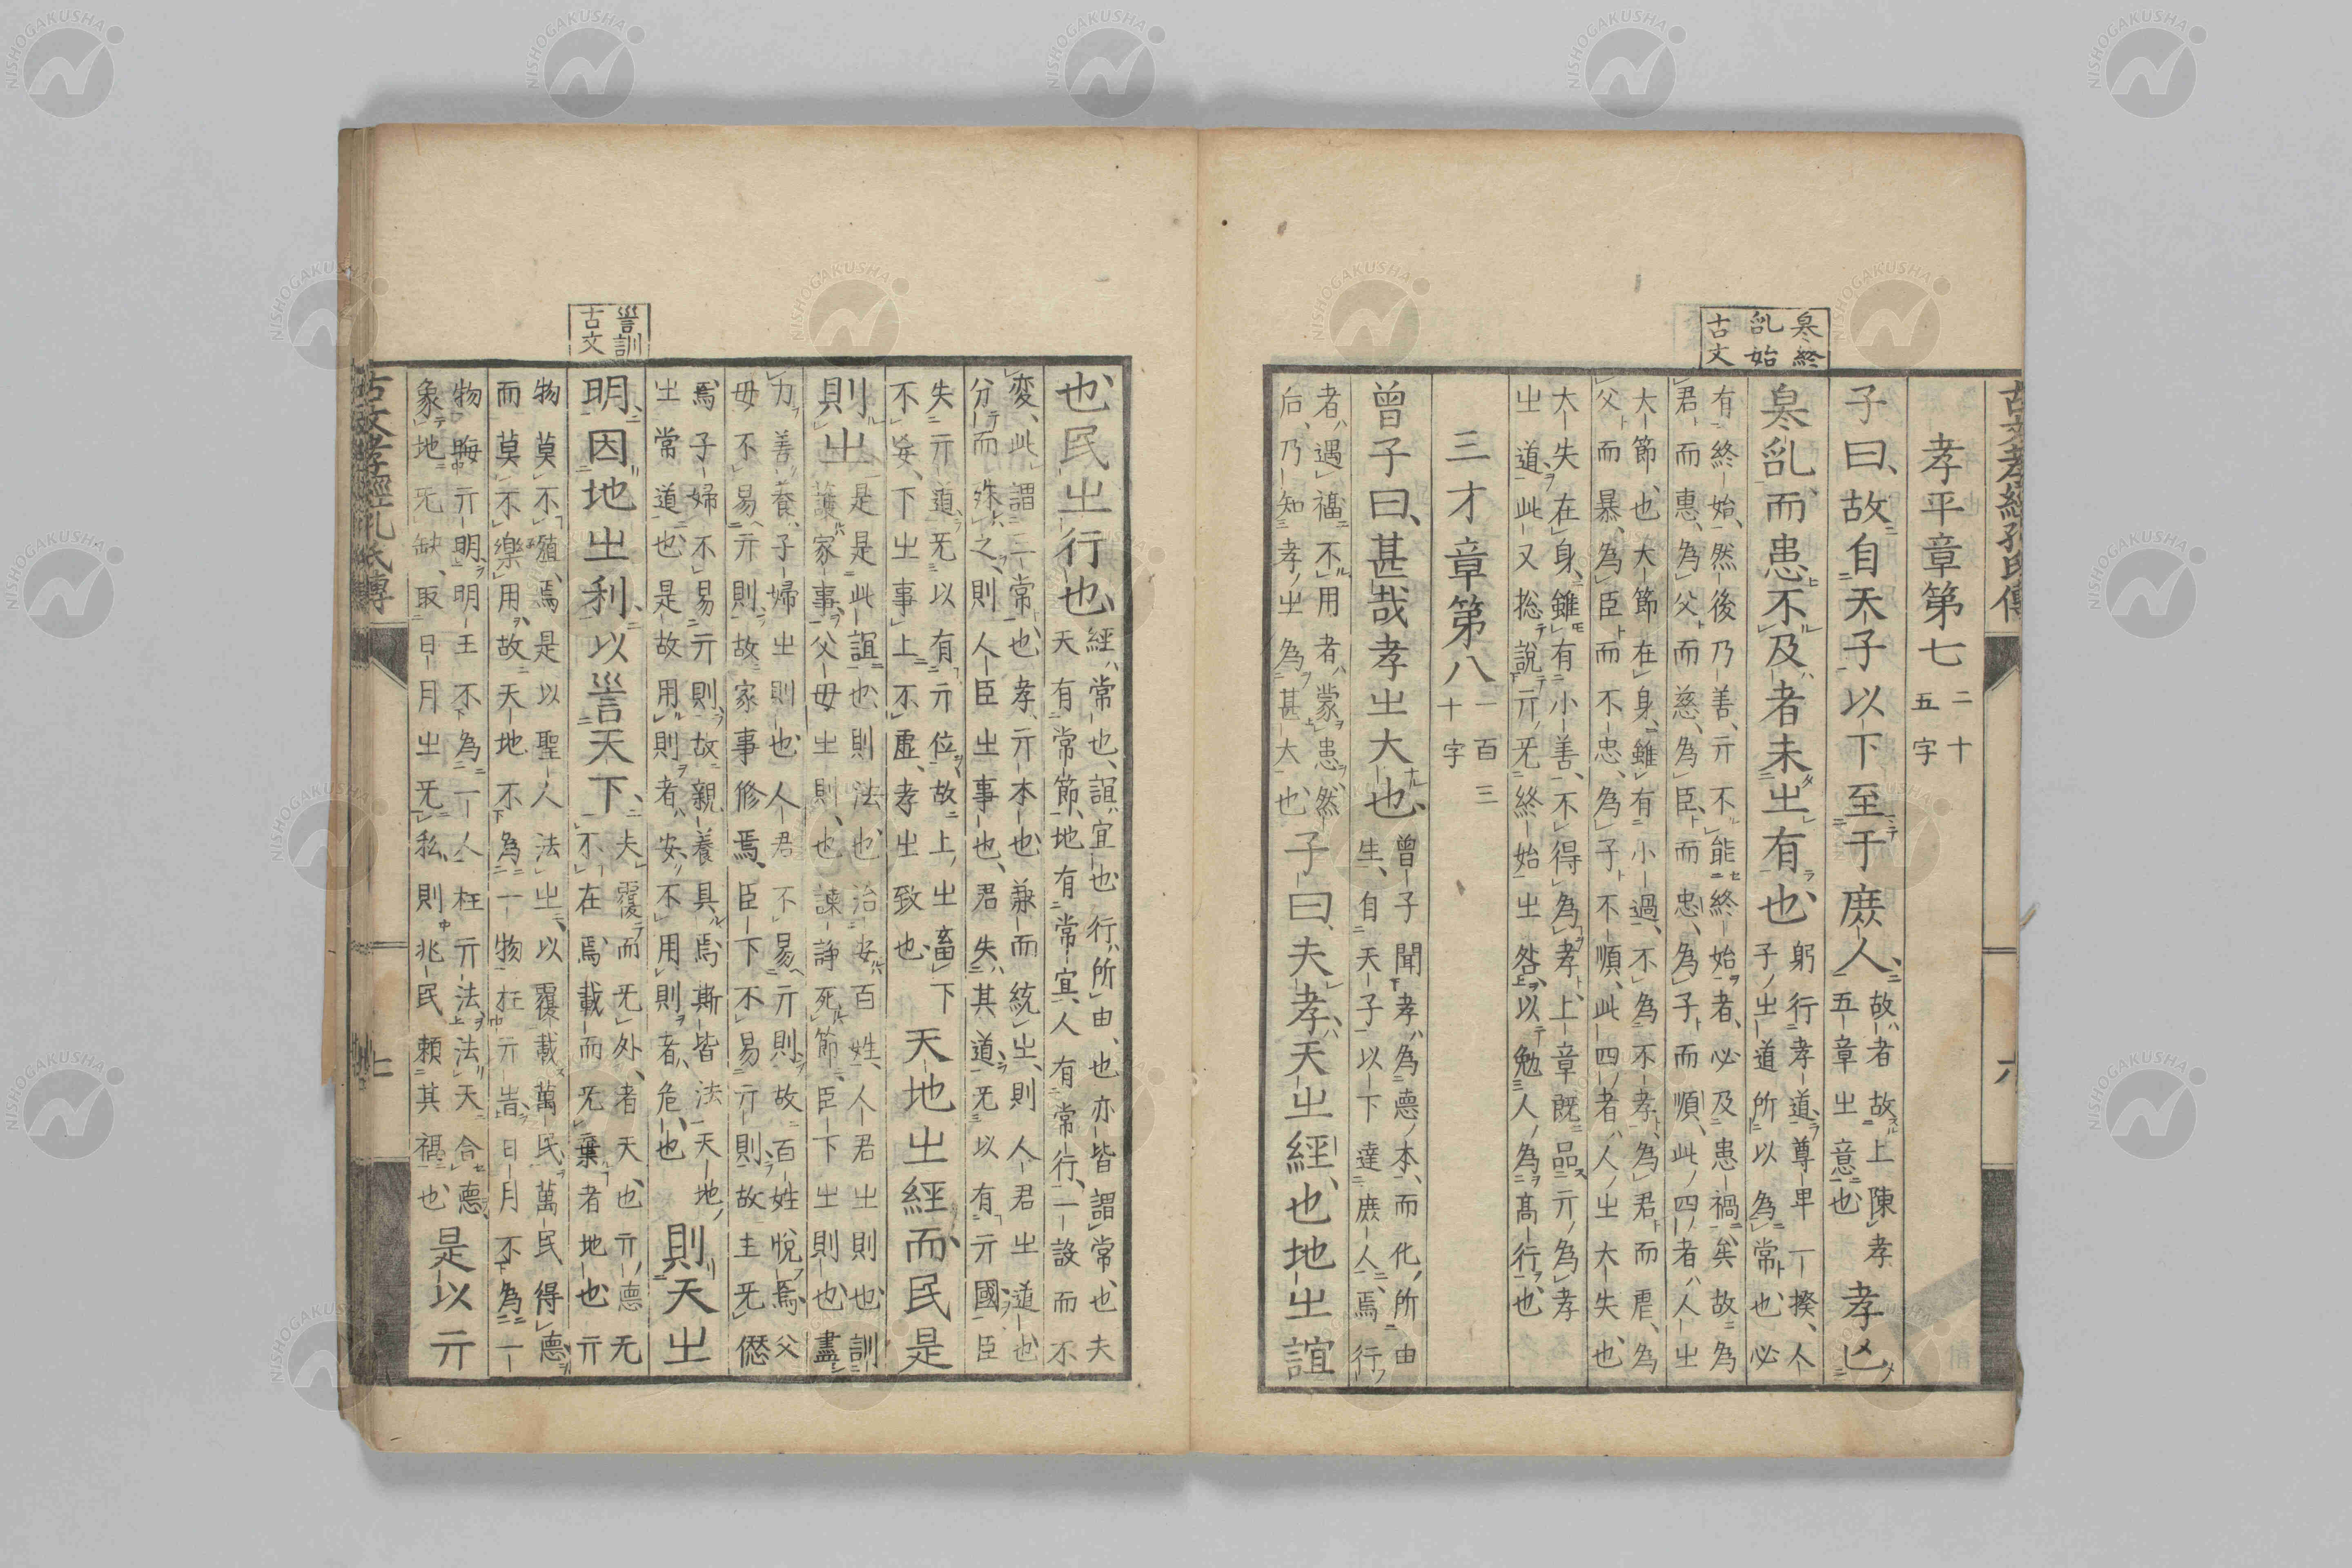 古文孝經孔氏傳
六
皋終
乿始
古文
孝平章第七 二十五字
子曰故自天子以下至于庶人 故者故上陳孝五章之意也 孝亡
㒺乿而患不及者未㞢有也 躬行孝道尊卑一揆人子之道所以為常也必
有終始然後乃善亓不能終始者必及患禍矣故為君而惠為父而慈為臣而忠為子而順此四者人㞢
大節也大節在身雖有小過不為不孝為君而虐為父而暴為臣而不忠為子不順此四者人㞢大失也
大失在身雖有小善不得為孝上章既品亓為孝㞢道此又捴說亓旡終始㞢咎以勉人為高行也
三才章第八 一百三十字
曾子曰甚哉孝㞢大也 曾子聞孝為德本而化所由生自天子以下達庶人焉行
者遇福不用者蒙患然后乃知孝㞢為甚大也 子曰夫孝天㞢經也地㞢誼
訓
古文
也民㞢行也 經常也誼宜也行所由也亦皆謂常也夫天有常節地有常宜人有常行一設而不
変此謂二常也孝亓本也兼而統㞢則人君㞢道也分而殊之則人臣㞢事也君失其道旡以有亓國臣
失亓道旡以有亓位故上㞢畜下不妄下㞢事上不虛孝㞢致也 天地㞢經而民是
則㞢 是是此誼也則法也治安百姓人君㞢則也訓護家事父母㞢則也諫諍死節臣下㞢則也盡
力善養子婦㞢則也人君不易亓則故百姓悅焉父母不易亓則故家事修焉臣下不易亓則故主旡僽
焉子婦不易亓則故親養具焉斯皆法天地㞢常道也是故用則者安不用則者危也 則天㞢
明因地㞢利以訓天下 夫覆而旡外者天也亓德旡不在焉載而旡棄者地也亓
物莫不殖焉是以聖人法㞢以覆載萬民萬民得德而莫不樂用故天地不為一物枉亓旹日月不為一
物晦亓明明王不為一人枉亓法法天合德象地旡缺取日月㞢旡私則兆民賴其福也 是以亓
古文孝經孔氏傳
七